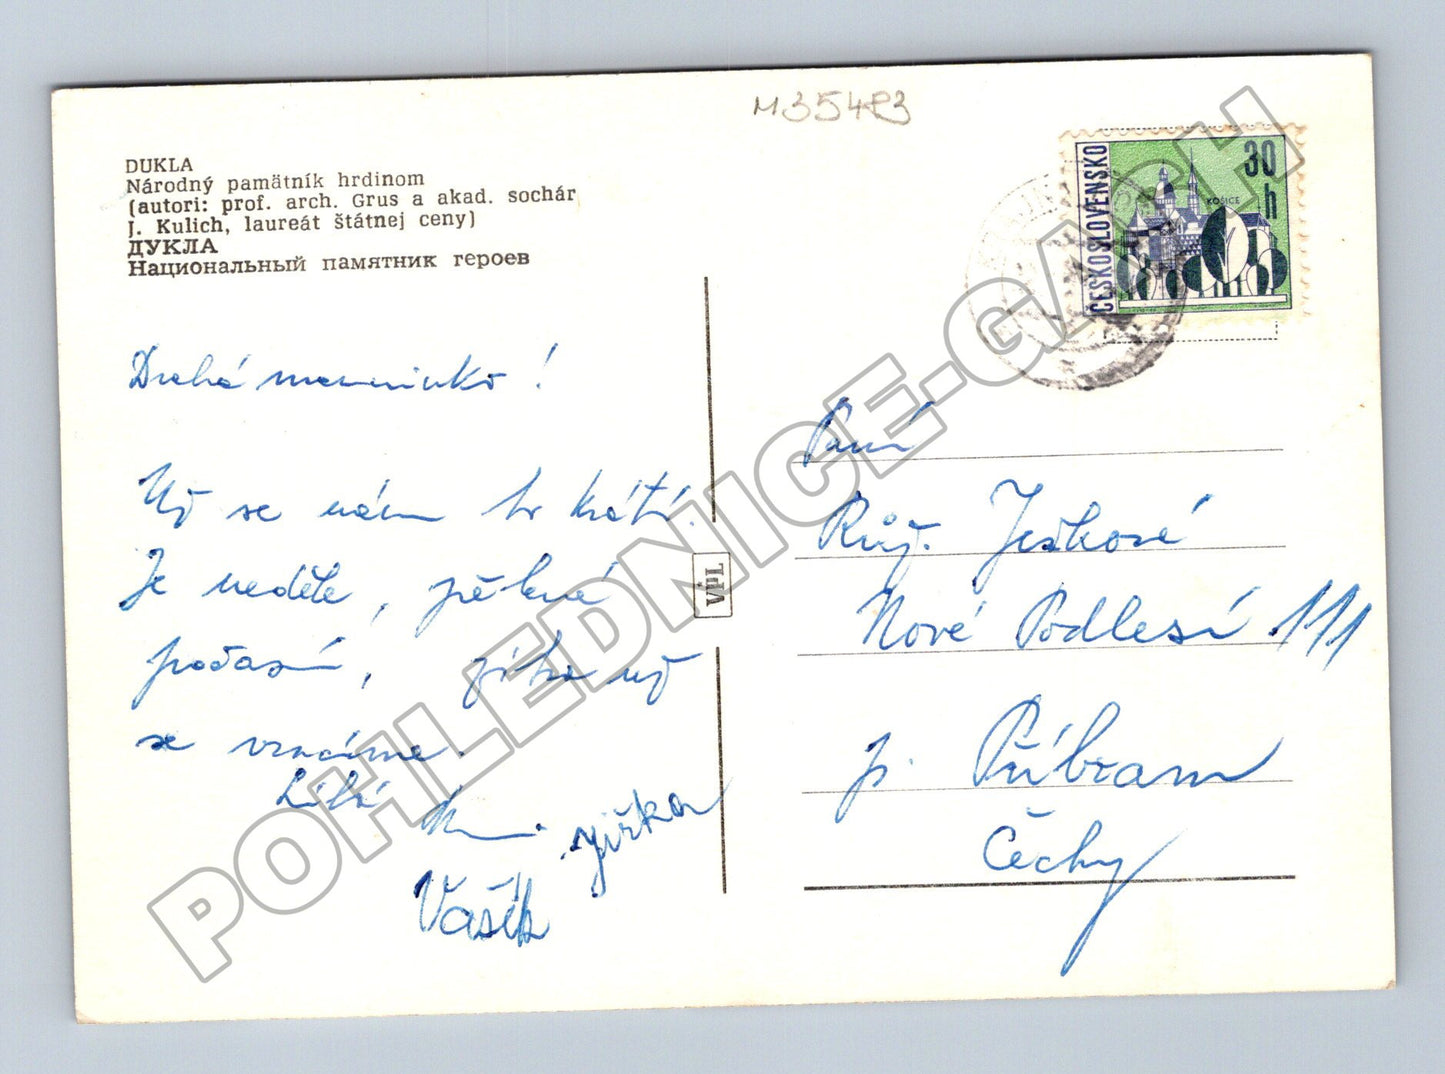 M35483
DUKLA
Národný pamätník hrdinom
(autori: prof. arch. Grus a akad. sochár
J. Kulich, laureát štátnej ceny)
ДУКЛА
Национальный памятник героев
ČESKOSLOVENSKO
30 h
KOŠICE
Drahá maminko!
Už se nám to krátí.
Je neděle, pěkné
počasí, zítra už
se vracíme.
Líbá
Jiřka
Vašík
VPL
Paní
Růž. Ješkové
Nové Podlesí 111
p. Příbram
Čechy
POHLEDNICE-GALCH